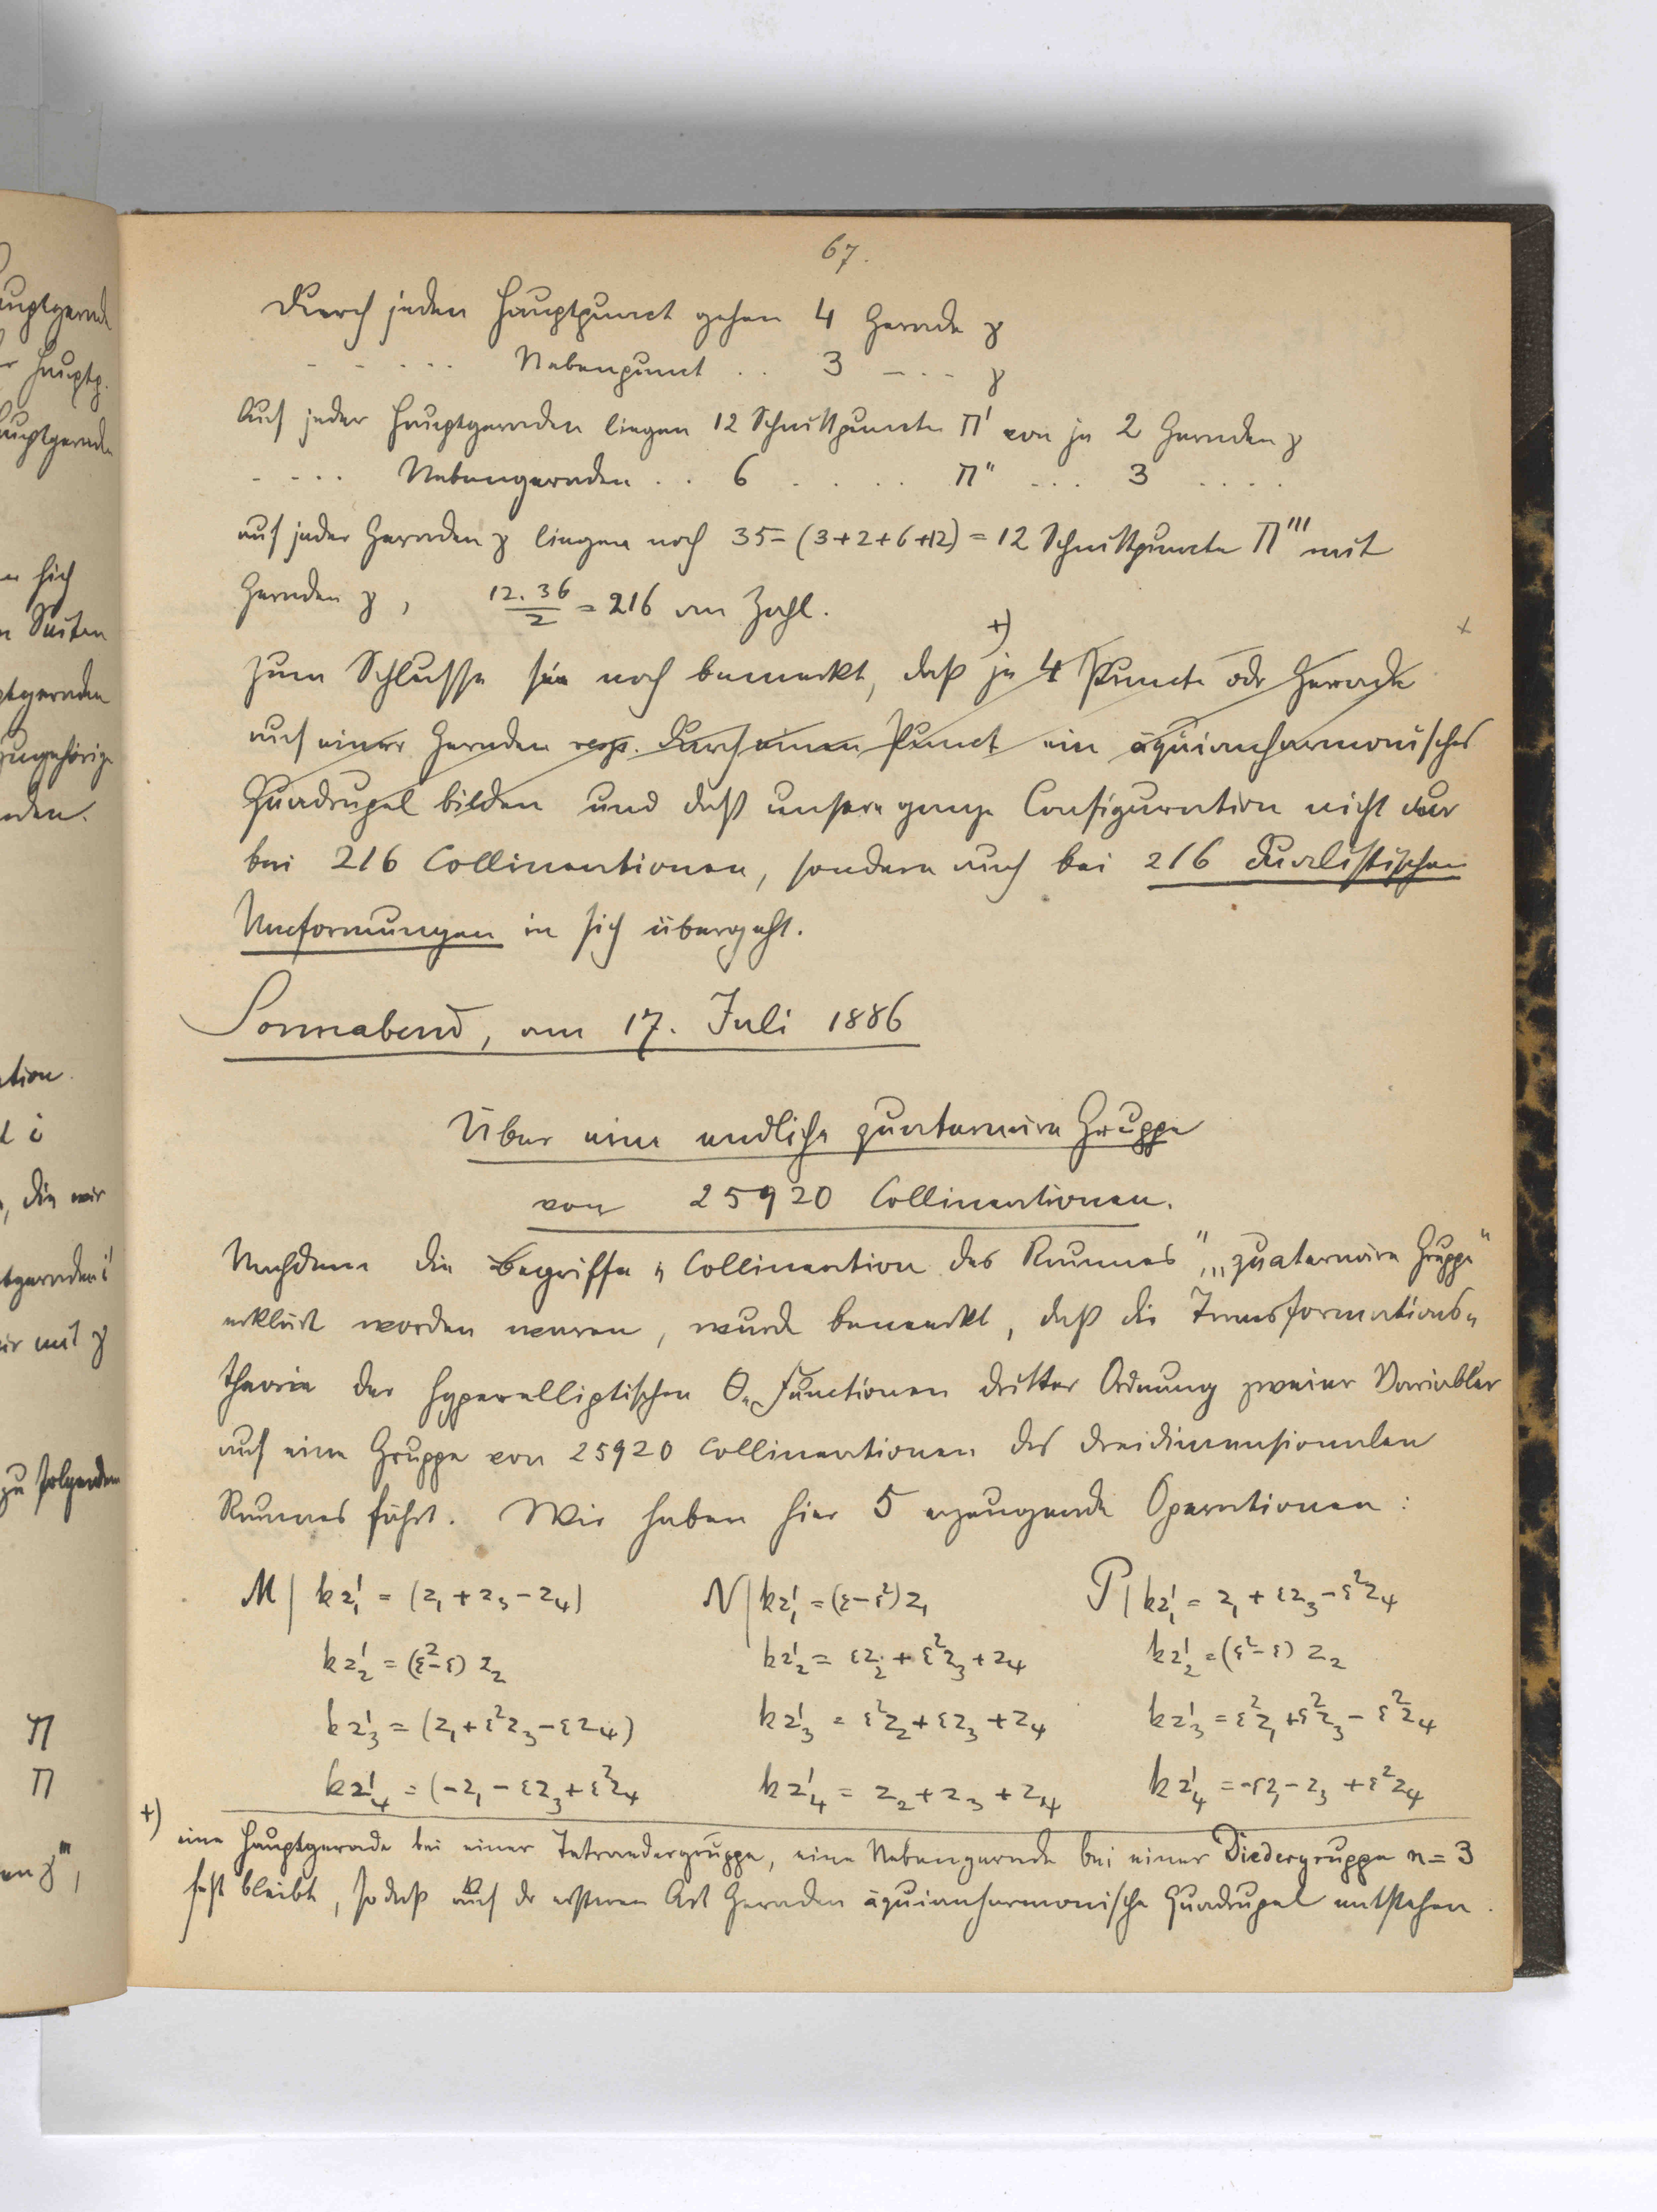 67.
Durch jeden Hauptpunct gehen 4 Gerade γ
- - . . . Nebenpunct . . 3 - . - γ
Auf jeder Hauptgeraden liegen 12 Schnittpuncte Π' von je 2 Geraden γ
- - . . Nebengeraden . . 6 . . . . Π" ... 3 ....
auf jeder Geraden γ liegen noch 35-(3+2+6+12) = 12 Schnittpuncte Π''' mit
Geraden γ, 12.36/2 = 216 an Zahl.
Zum Schlusse sei noch bemerkt, daß +) je 4 Puncte oder Gerade
auf einer Geraden resp. durch einen Punct ein äquianharmonisches
Quadrupel bilden und daß unsere ganze Configuration nicht nur
bei 216 Collineationen, sondern auch bei 216 dualistischen
Umformungen in sich übergeht.
Sonnabend, am 17. Juli 1886
Über eine endliche quaternäre Gruppe
von 25920 Collineationen.
Nachdem die Begriffe „Collineation des Raumes", „quaternäre Gruppe"
erklärt worden waren, wurde bemerkt, daß die Transformations-
theorie der hyperelliptischen Θ-Functionen dritter Ordnung zweier Variabler
auf eine Gruppe von 25920 Collineationen des dreidimensionalen
Raumes führt. Wir haben hier 5 erzeugende Operationen:
M | kz₁' = (z₁ + z₃ - z₄) N | kz₁' = (ε-ε²)z₁ P | kz₁' = z₁ + εz₃ - ε²z₄
kz₂' = (ε²-ε) z₂ kz₂' = εz₂ + ε²z₃ + z₄ kz₂' = (ε²-ε) z₂
kz₃' = (z₁ + ε²z₃ - εz₄) kz₃' = ε²z₂ + εz₃ + z₄ kz₃' = ε²z₁ + ε²z₃ - ε²z₄
kz₄' = (-z₁ - εz₃ + ε²z₄ kz₄' = z₂ + z₃ + z₄ kz₄' = -εz₁ - z₃ + ε²z₄
+) eine Hauptgerade bei einer Tetraedergruppe, eine Nebengerade bei einer Diedergruppe n = 3
fest bleibt, so daß auf der ersteren Art Geraden äquianharmonische Quadrupel entstehen.